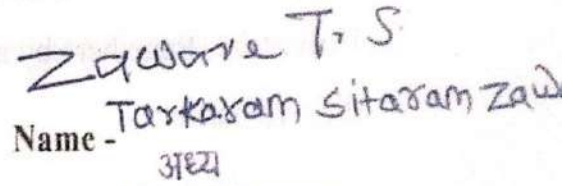 Zaware T. S
Name - Tarkaram Sitaram Zaw
अध्य